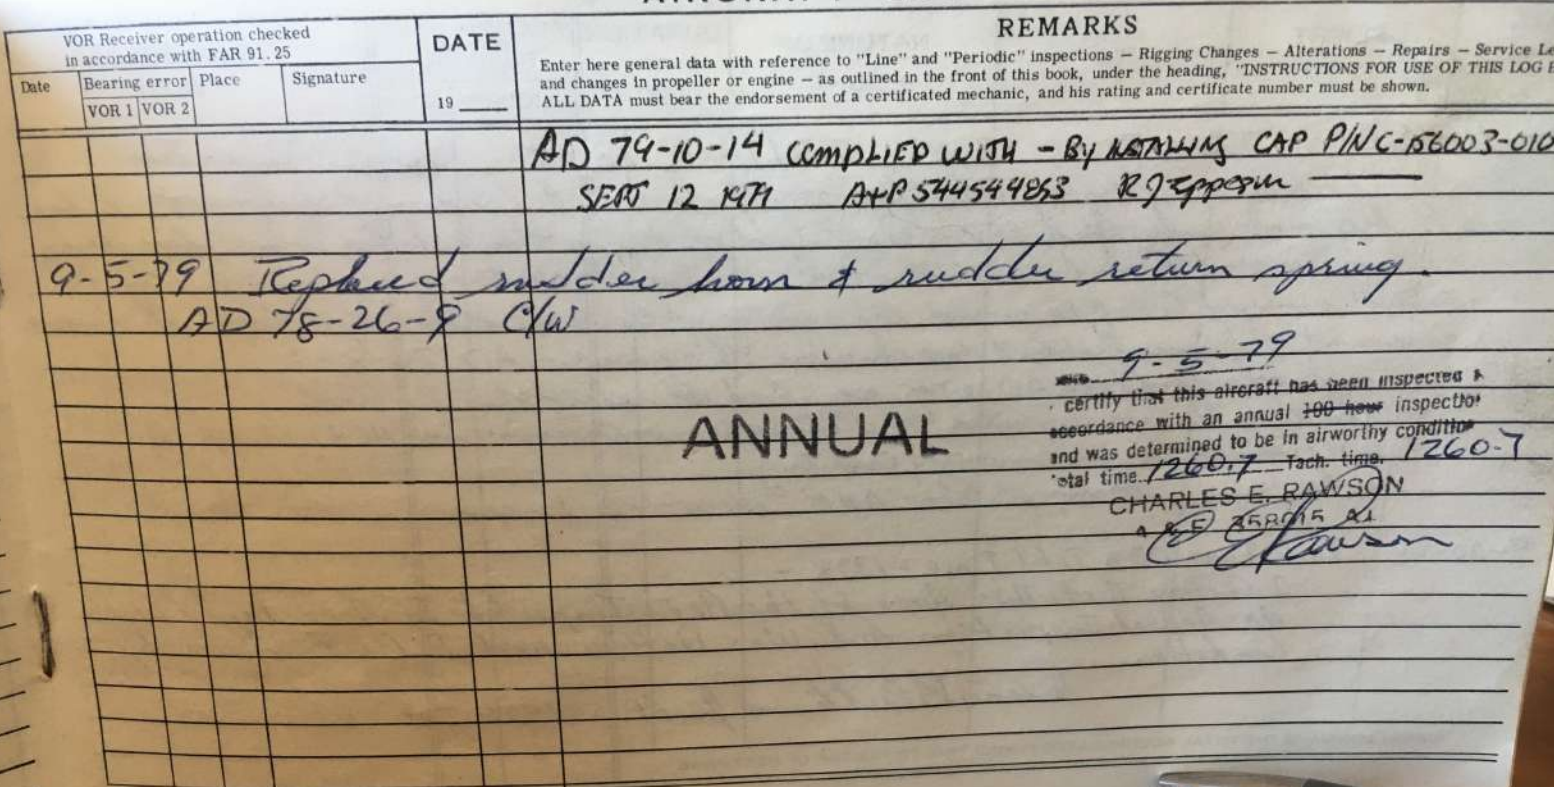 VOR Receiver operation checked
in accordance with FAR 91.25
Date Bearing error Place Signature
VOR 1 VOR 2
DATE
19
REMARKS
Enter here general data with reference to "Line" and "Periodic" inspections — Rigging Changes — Alterations — Repairs — Service Le
and changes in propeller or engine — as outlined in the front of this book, under the heading, "INSTRUCTIONS FOR USE OF THIS LOG B
ALL DATA must bear the endorsement of a certificated mechanic, and his rating and certificate number must be shown.
AD 79-10-14 COMPLIED WITH - BY INSTALLING CAP P/N C-156003-010
SEPT 12 1979 A+P 544544853
9-5-79 Replaced rudder horn & rudder return spring.
AD 78-26-9 C/W
9-5-79
certify that this aircraft has been inspected
accordance with an annual 100 hour inspection
and was determined to be in airworthy condition
ANNUAL
total time. 1260.7 Tach. time. 1260.7
CHARLES E. RAWSON
C E Rawson